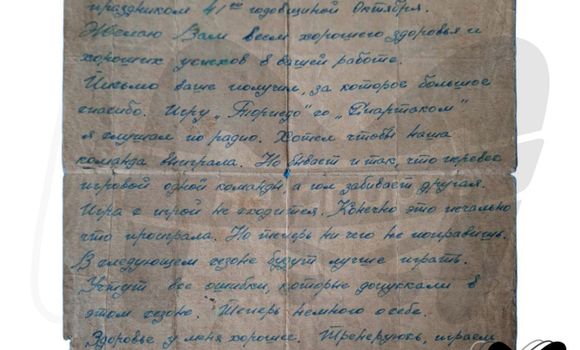 праздником 41ой годовщиной Октября.
Желаю Вам всем хорошего здоровья и
хороших успехов в вашей работе.
Письмо ваше получил, за которое большое
спасибо. Игру „Торпедо" со „Спартаком"
я слушал по радио. Хотел чтобы наша
команда выиграла. Но бывает и так, что перевес
игровой одной команды а гол забивает другая.
Игра с игрой не сходится. Конечно это печально
что проиграла. Но теперь ничего не поправишь.
В следующем сезоне будут лучше играть.
Учтут все ошибки, которые допускали в
этом сезоне. Теперь немного о себе.
Здоровье у меня хорошее. Тренеруюсь, играем